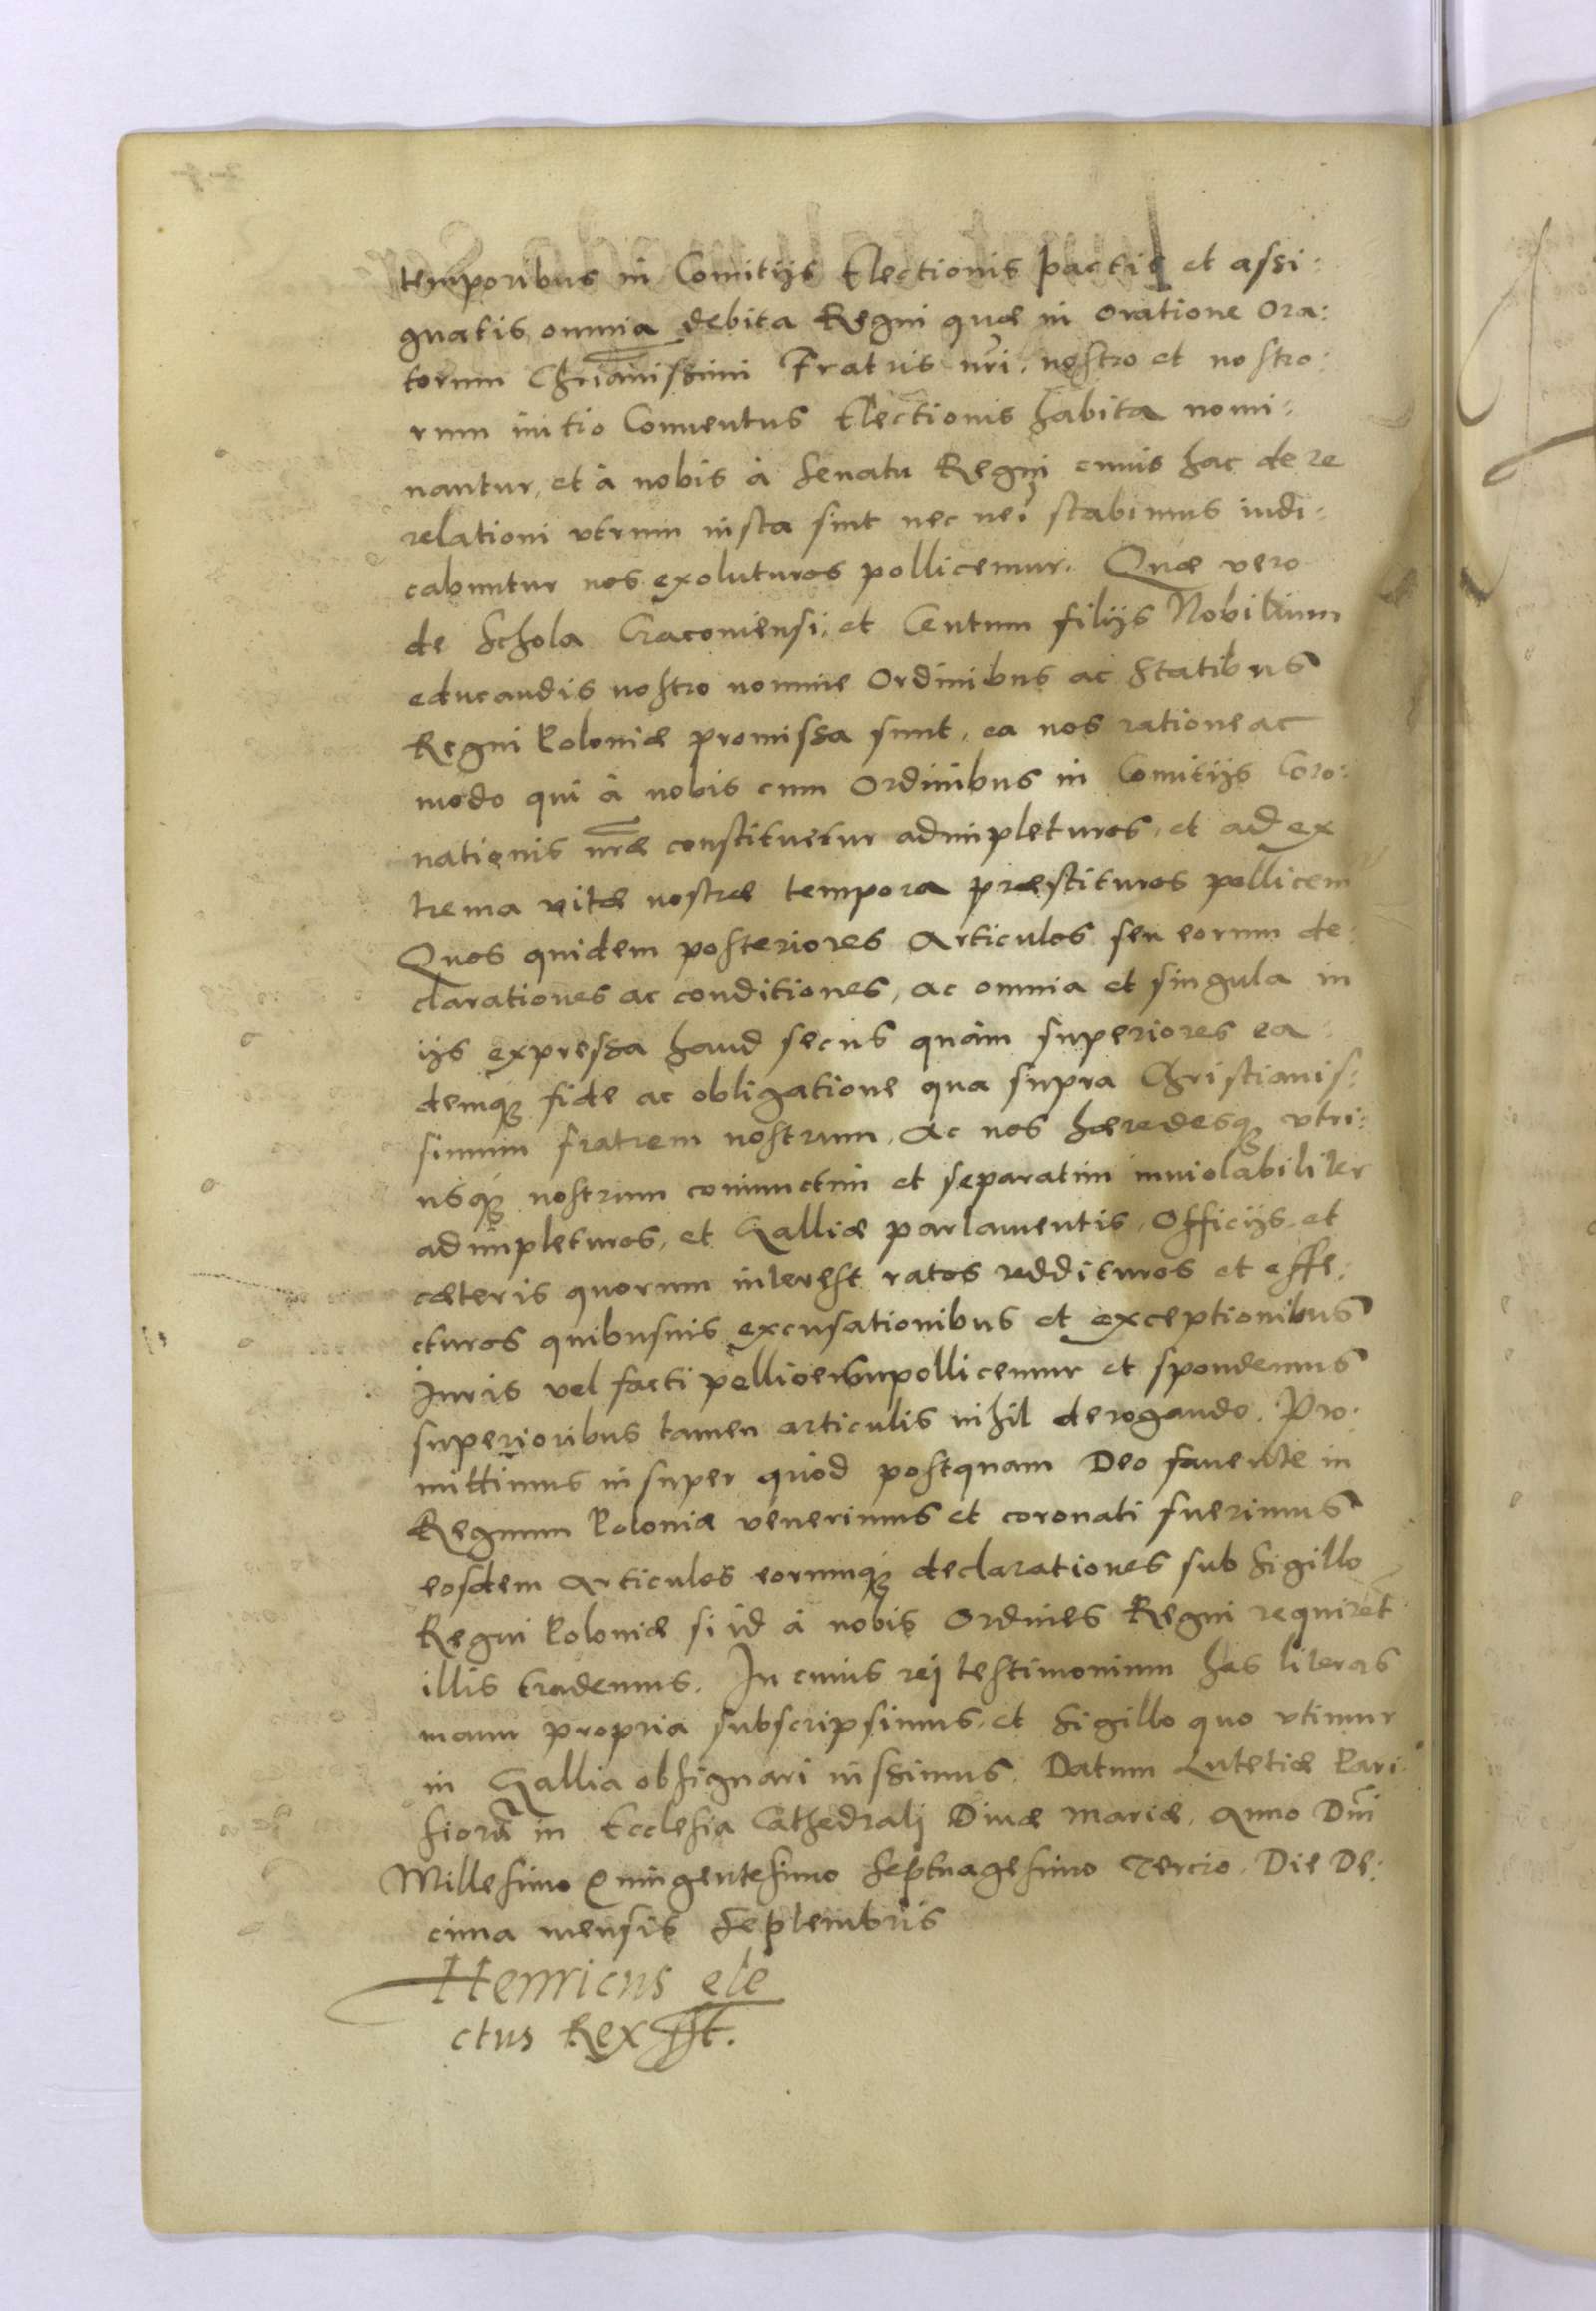 temporibus in Comitijs Electionis pactis et assi:
gnatis, omnia debita Regni quæ in oratione Ora:
torum Chrianissimi Fratris nri, nostro et nostro:
rum initio Conventus Electionis habita nomi:
nantur, et à nobis à senatu Regni cuius hac de re
relationi vtrum iusta sint nec ne, stabimus iudi:
cabuntur nos exoluturos pollicemur. Quæ vero
de Schola Cracoviensi, et Centum filijs Nobilium
educandis nostro nomine Ordinibus ac Statibus
Regni Poloniæ promissa sunt, ea nos ratione ac
modo qui à nobis cum Ordinibus in Comitijs Coro:
nationis nræ constituetur adimpleturos, et ad ex
trema vitæ nostræ tempora præstituros pollicem
Quos quidem posteriores Articulos seu eorum de:
clarationes ac conditiones, ac omnia et singula in
ijs expressa haud secus quàm superiores ea
demq; fide ac obligatione qua supra Christianis:
simum fratrem nostrum, ac nos hæredesq; vtri:
usq; nostrum coniunctim et separatim inuiolabiliter
adimpleturos, et Galliæ parlamentis, Officijs et
cæteris quorum interest ratos reddituros et effe:
cturos quibusuis excusationibus et exceptionibus
Iuris vel facti pollicemur et spondemus
superioribus tamen articulis nihil derogando. Pro:
mittimus insuper quòd postquam Deo fauente in
Regnum Poloniæ venerimus et coronati fuerimus
eosdem Articulos eorumq; declarationes sub sigillo
Regni Poloniæ si id à nobis Ordines Regni requiret
illis trademus. In cuius rej testimonium has literas
manu propria subscripsimus, et sigillo quo vtimur
in Gallia obsignari iussimus. Datum Lutetiæ Pari:
siorũ in Ecclesia Cathedralj Diuæ Mariæ. Anno Dnĩ
Millesimo Quingentesimo Septuagesimo Tercio. Die De:
cima mensis Septembris
Henricus ele
ctus Rex sst.